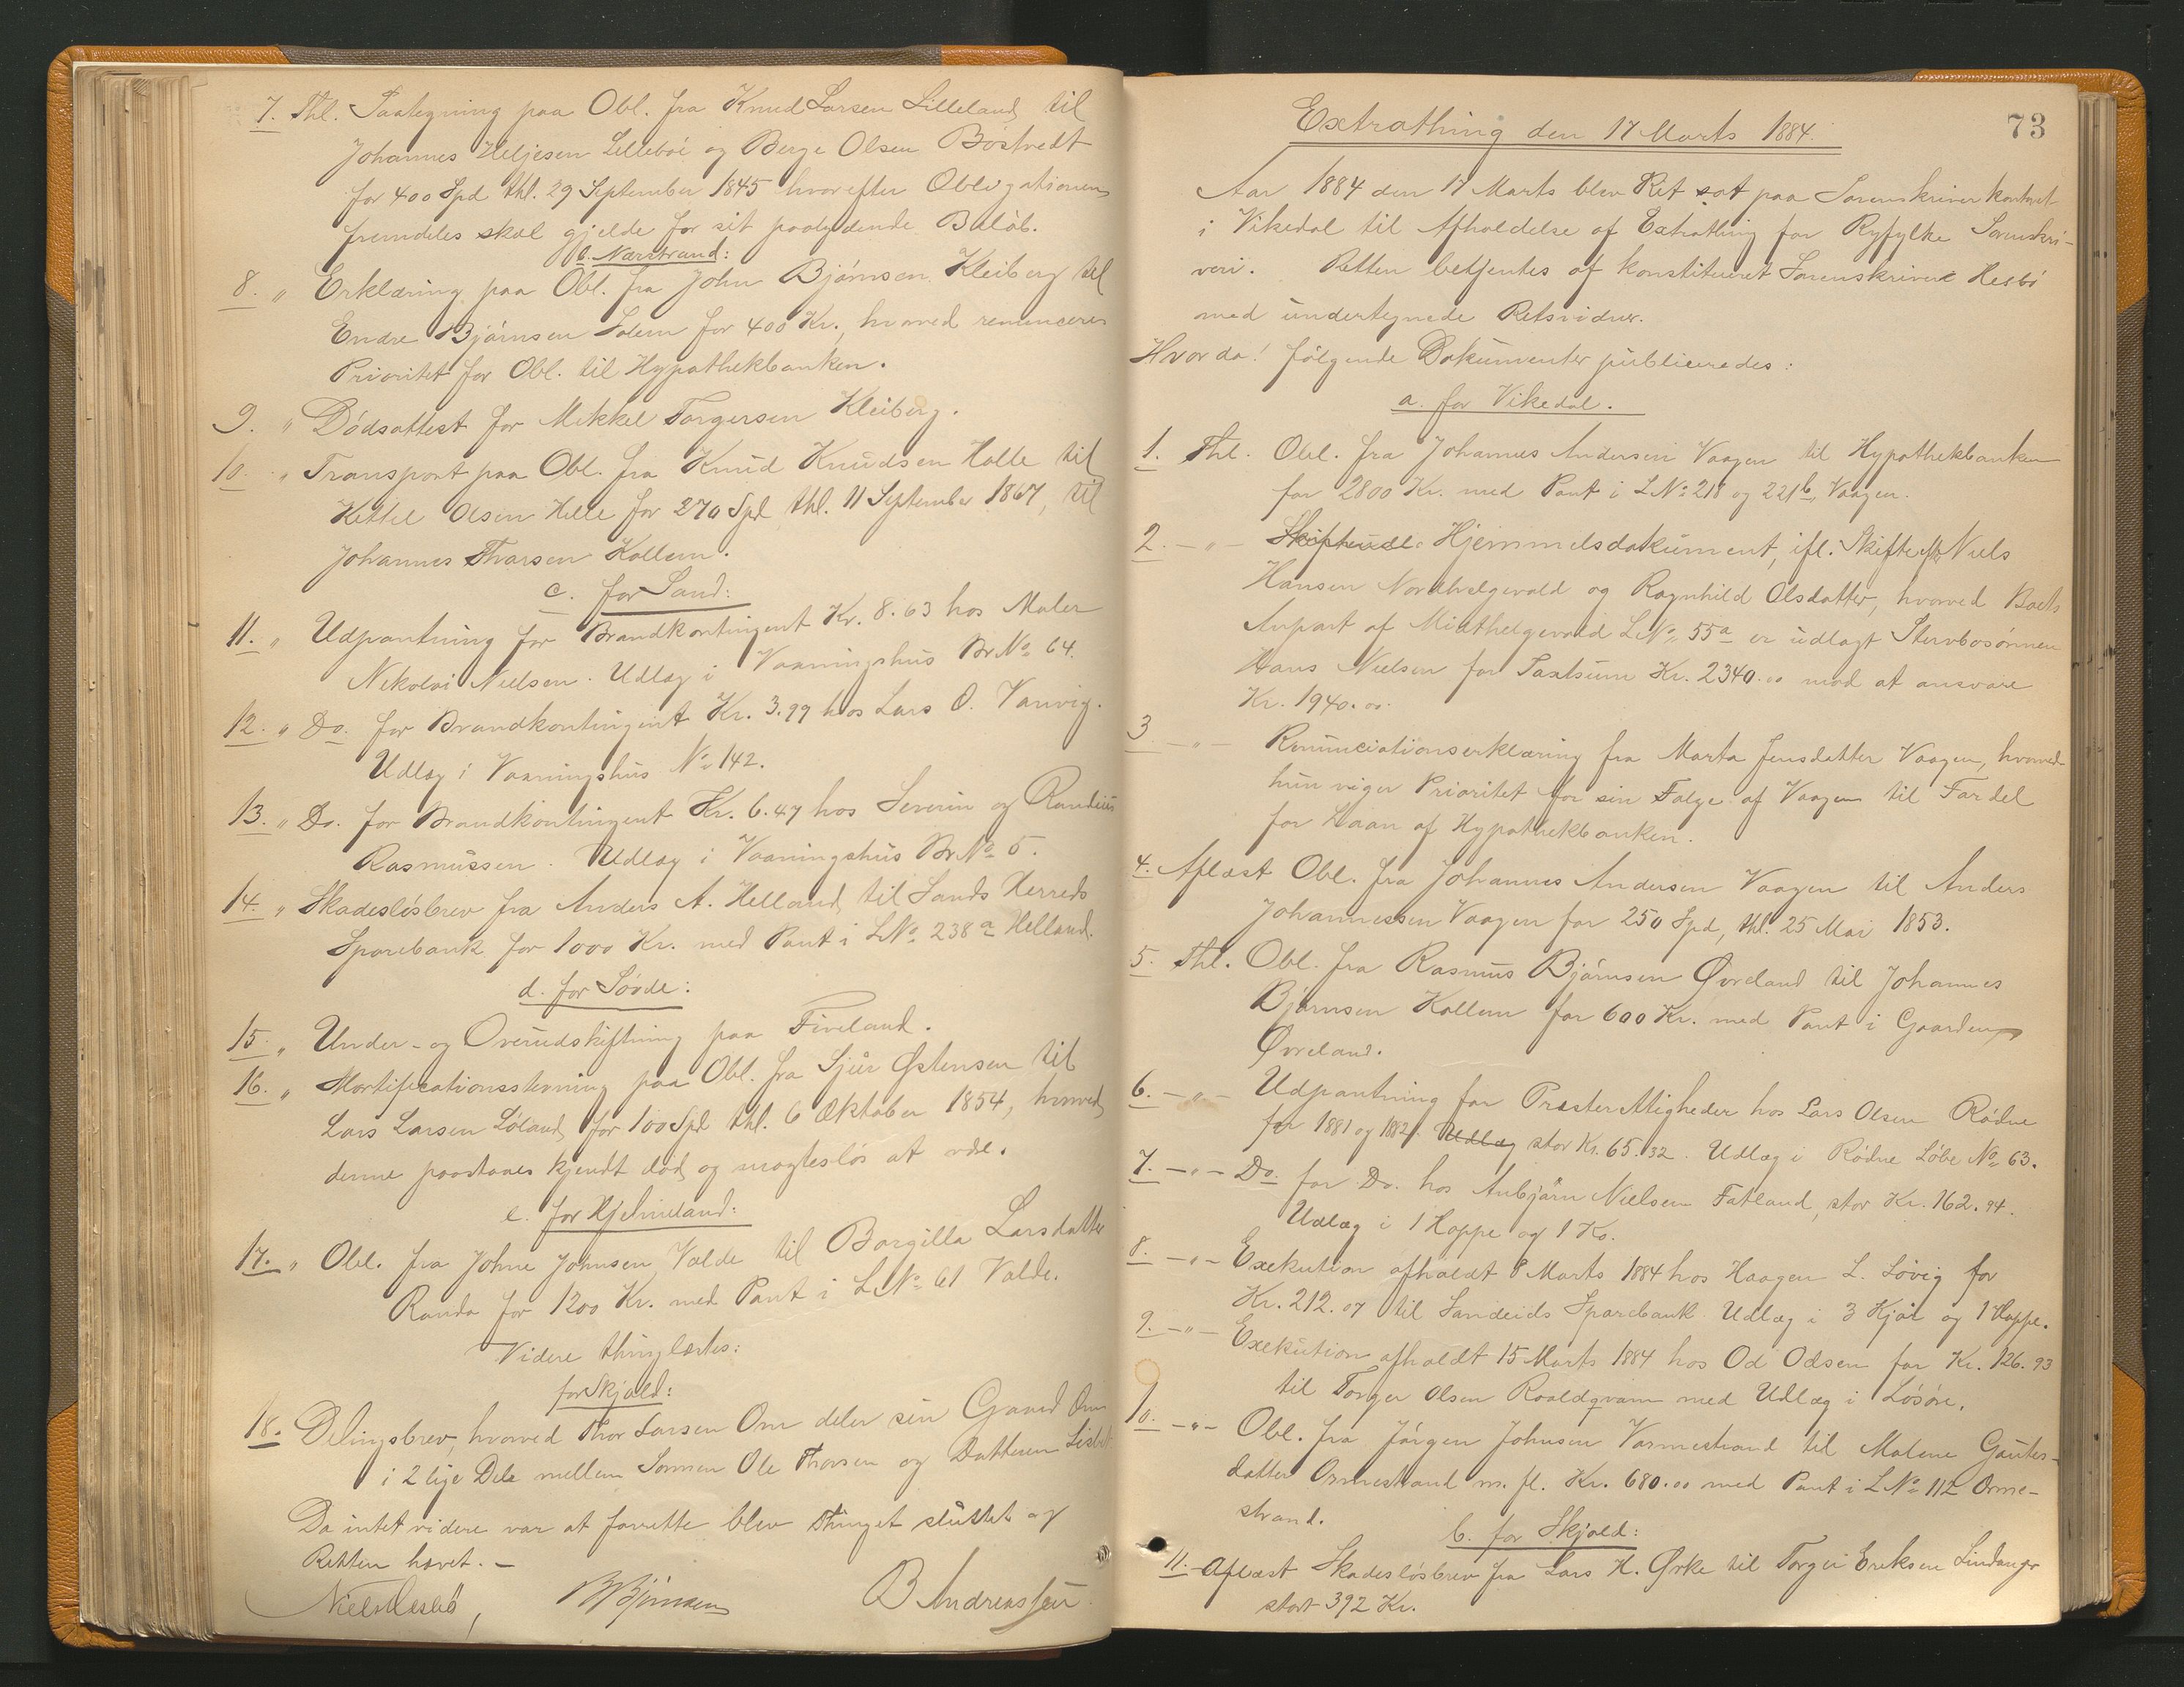 7. Thl. Paategning paa Obl. fra Knud Larsen Lilleland til
Johannes Heljesen Lillebøi og Berge Olsen Bøstvedt
for 400 Spd thl. 29 September 1845 hvorefter Obligationen
fremdeles skal gjelde for sit paalydende Beløb.
b. Nærstrand:
8. " Erklæring paa Obl. fra John Bjørnsen Kleiberg til
Endre Bjørnsen Solem for 400 Kr., hvorved renunceres
Prioritet for Obl. til Hypothekbanken.
9. " Dødsattest for Mikkel Torgersen Kleiberg.
10. " Transport paa Obl. fra Knud Knudsen Halle til
Kittel Olsen Helle for 270 Spd thl. 11 September 1867, til
Johannes Tharsen Kallem.
c. for Sand:
11. " Udpantning for Brandkontingent Kr. 8.63 hos Maler
Nikolai Nielsen. Udlæg i Vaaningshus Br No 64.
12. " Do. for Brandkontingent Kr. 3.99 hos Lars O. Vanvig.
Udlæg i Vaaningshus No 142.
13. " Do. for Brandkontingent Kr. 6.47 hos Severin og Randius
Rasmussen. Udlæg i Vaaningshus Br No 5.
14. " Skadesløsbrev fra Anders A. Helland til Sands Herreds
Sparebank for 1000 Kr. med Pant i LNo 238a Helland.
d. for Søvde:
15. " Under- og Overudskiftning paa Fiveland.
16. " Mortificationsstevning paa Obl. fra Sjur Østensen til
Lars Larsen Løland for 100 Spd thl. 6 Oktober 1854, hvorved
denne paastaaes kjendt død og magtesløs at være.
e. for Hjelmeland:
17. " Obl. fra Johne Johnsen Valde til Borgilla Larsdatter
Randa for 1200 Kr. med Pant i LNo 61 Valde.
Videre thinglæstes:
for Skjold:
18. Delingsbrev, hvorved Thor Larsen Om deler sin Gaard Om
i 2 lige Dele mellem Sønnen Ole Thorsen og Datteren Lisbet
Da intet videre var at forrette blev Thinget sluttet og
Retten hævet. –
Niels Hesbø, B Bjørnsen B Andreassen
73
Extrathing den 17 Marts 1884.
Aar 1884 den 17 Marts blev Ret sat paa Sorenskriverkontoret
i Vikedal til Afholdelse af Extrathing for Ryfylke Sorenskri-
veri. Retten betjentes af konstitueret Sorenskriver Hesbø
med undertegnede Retsvidner.
Hvorda! følgende Dokumenter publiceredes:
a. for Vikedal.
1. Thl. Obl. fra Johannes Andersen Vaagen til Hypothekbanken
for 2800 Kr. med Pant i LNo 218 og 221b, Vaagen.
2. – " – Skifteudl. Hjemmelsdokument, ifl. Skifte eft. Niels
Hansen Nordhelgevold og Ragnhild Olsdatter, hvorved Boets
Anpart af Midthelgevold LNo 55a er udlagt Stervbosønnen
Hans Nielsen for Taxtsum Kr. 2340.00 mod at ansvare
Kr. 1940.00.
3 – " – Renunciationserklæring fra Marta Jensdatter Vaagen, hvorved
hun viger Prioritet for sin Følge af Vaagen til Fordel
for Laan af Hypothekbanken.
4. Aflæst Obl. fra Johannes Andersen Vaagen til Anders
Johannessen Vaagen for 250 Spd, thl. 25 Mai 1853.
5. Thl. Obl. fra Rasmus Bjørnsen Øvreland til Johannes
Bjørnsen Kallem for 600 Kr. med Pant i Gaarden
Øvreland.
6. – " – Udpantning for Presterettigheder hos Lars Olsen Rødne
for 1881 og 1882. Udlæg stor Kr. 65.32. Udlæg i Rødne Løbe No 63.
7. – " – Do. for Do. hos Anbjørn Nielsen Fatland, stor Kr. 162.94.
Udlæg i 1 Hoppe og 1 Ko.
8. – " – Exekution afholdt 8 Marts 1884 hos Haagen L. Løvig for
Kr. 212.07 til Sandeids Sparebank. Udlæg i 3 Kjør og 1 Hoppe.
9. – " – Exekution afholdt 15 Marts 1884 hos Od Odsen for Kr. 126.93
til Torger Olsen Roaldqvam med Udlæg i Løsøre.
10. – " – Obl. fra Jørgen Johnsen Varmestrand til Malene Gautes-
datter Ormestrand m. fl. Kr. 680.00 med Pant i LNo 112 Orme-
strand.
b. for Skjold:
11. Aflæst Skadesløsbrev fra Lars H. Ørke til Torger Eriksen Lindanger
stort 392 Kr.